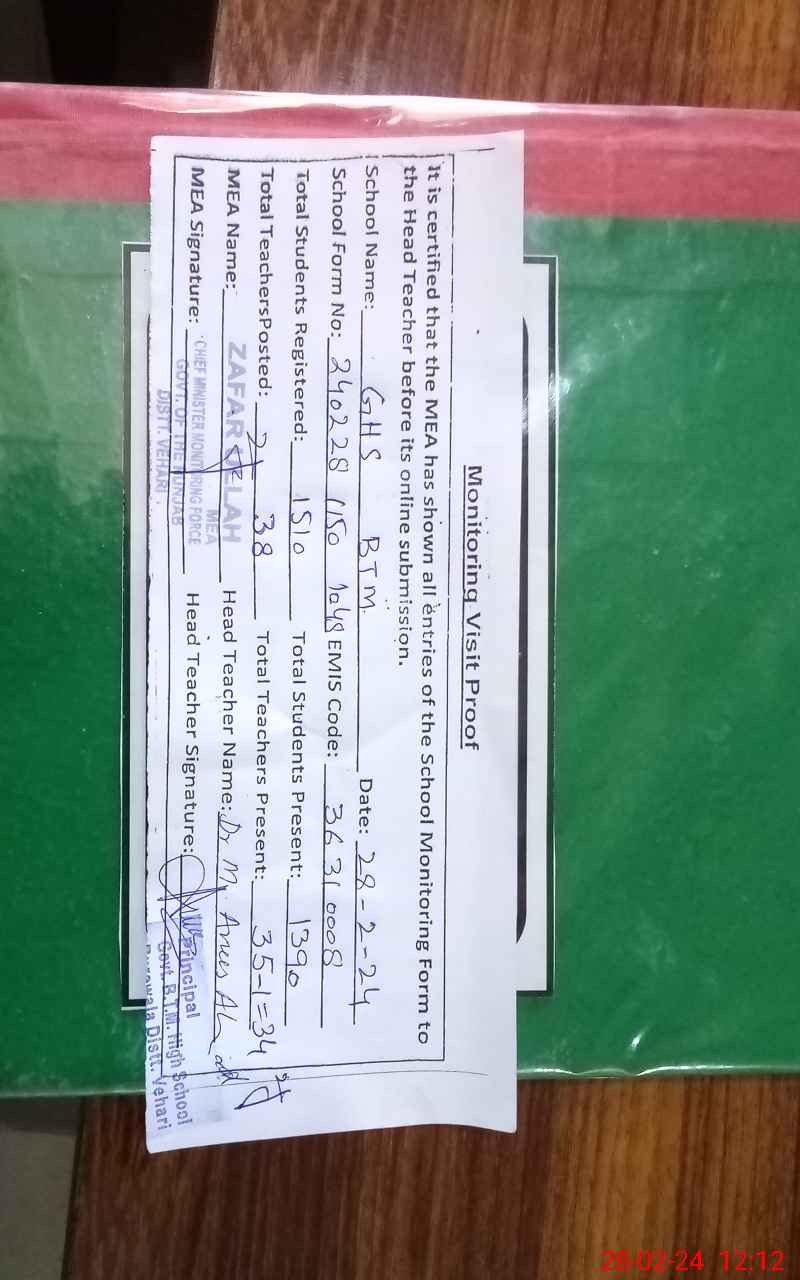 Monitoring Visit Proof
It is certified that the MEA has shown all entries of the School Monitoring Form to
the Head Teacher before its online submission.
School Name: GHS BTM. Date: 28-2-24
School Form No: 240228 1150 1048 EMIS Code: 36310008
Total Students Registered: 1510 Total Students Present: 1390
Total TeachersPosted: 38 Total Teachers Present: 35-1=34
MEA Name: ZAFAR ULLAH Head Teacher Name: Dr M. Anees
MEA
MEA Signature: Head Teacher Signature:
CHIEF MINISTER MONITORING FORCE
GOVT. OF THE PUNJAB
DISTT. VEHARI
Principal
Govt. B.T.M. High School
Burewala Distt. Vehari
28-02-24 12:12